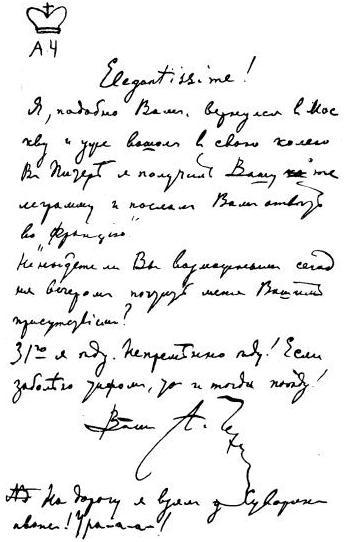 А Ч
Elegantissime!
Я, подобно Вам, вернулся в Мос
кву и уже вошел в свою колею
В Питере я получил Вашу те
леграмму и послал Вам ответ
во "Францию"
Не найдете ли Вы возможным сегод
ня вечером почтить меня Вашим
присутствием?
31го я еду. Непременно еду! Если
заболею тифом, то и тогда поеду!
Ваш А. Чехов
NB На дорогу я взял у Суворина
аванс! Ура-а-а-а!